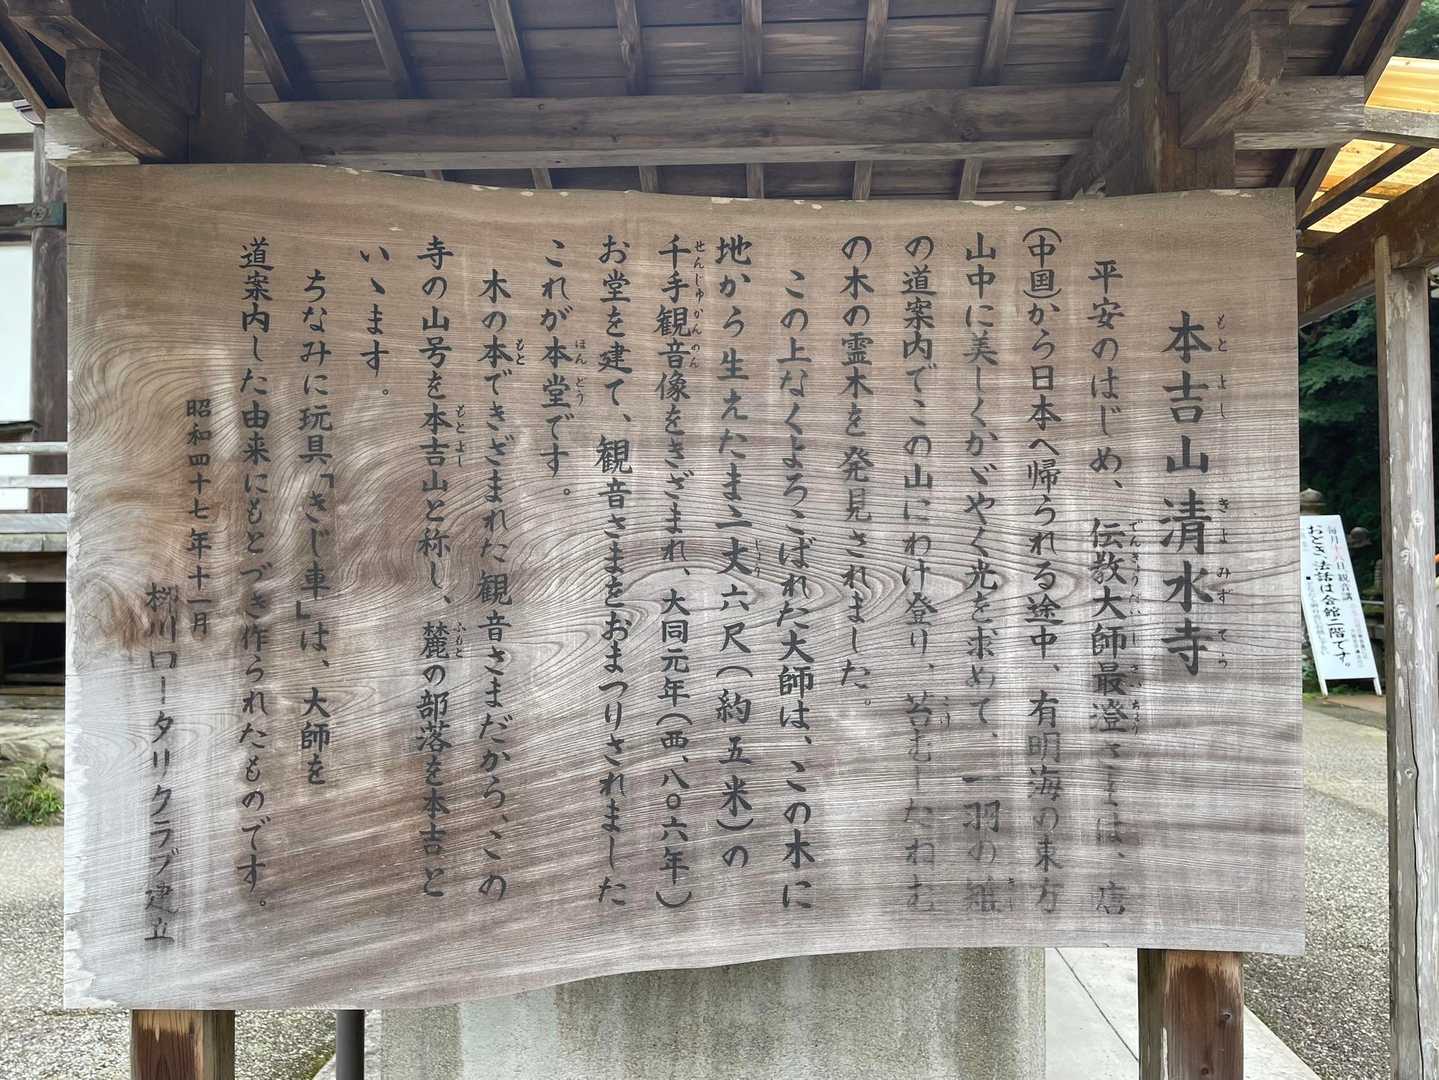 本吉山清水寺
もとよしきよみずでら
平安のはじめ、伝教大師最澄さまは、唐
でんきょうだいしさいちょう
(中国)から日本へ帰られる途中、有明海の東方
山中に美しくかゞやく光を求めて、一羽の雉
きじ
の道案内でこの山にわけ登り、苔むしたねむ
こけ
の木の霊木を発見されました。
この上なくよろこばれた大師は、この木に
地から生えたまゝ一丈六尺(約五米)の
じょう
千手観音像をきざまれ、大同元年(西、八〇六年)
せんじゅかんのん
お堂を建て、観音さまをおまつりされました
これが本堂です。
ほんどう
木の本できざまれた観音さまだから、この
もと
寺の山号を本吉山と称し、麓の部落を本吉と
もとよし
ふもと
いゝます。
ちなみに玩具「きじ車」は、大師を
道案内した由来にもとづき作られたものです。
昭和四十七年十一月
柳川ロータリクラブ建立
毎月十八日観音講
おとき、法話は会館二階です。